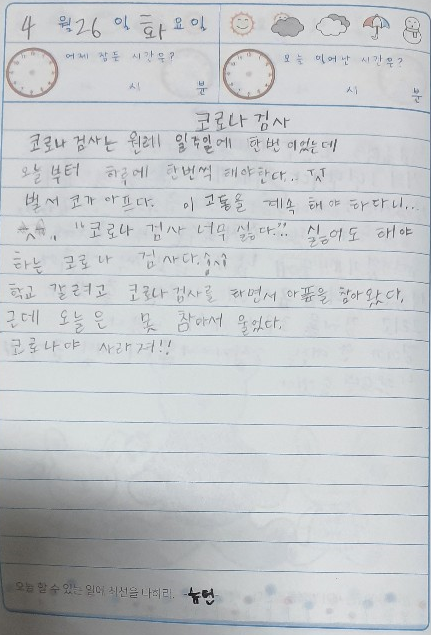 4 월 26 일 화 요일
어제 잠든 시간은?
시 분
오늘 일어난 시간은?
시 분
코로나 검사
코로나 검사는 원래 일주일에 한번 이었는데
오늘 부터 하루에 한번씩 해야한다.. ㅠㅠ
벌서 코가 아프다. 이 고통을 계속 해야 하다니..
"코로나 검사 너무 싫다." 싫어도 해야
하는 코로나 검사다.
학교 갈려고 코로나 검사를 하면서 아픔을 참아왔다.
근데 오늘은 못 참아서 울었다.
코로나야 사라져!!
오늘 할 수 있는 일에 최선을 다하라. -뉴턴-